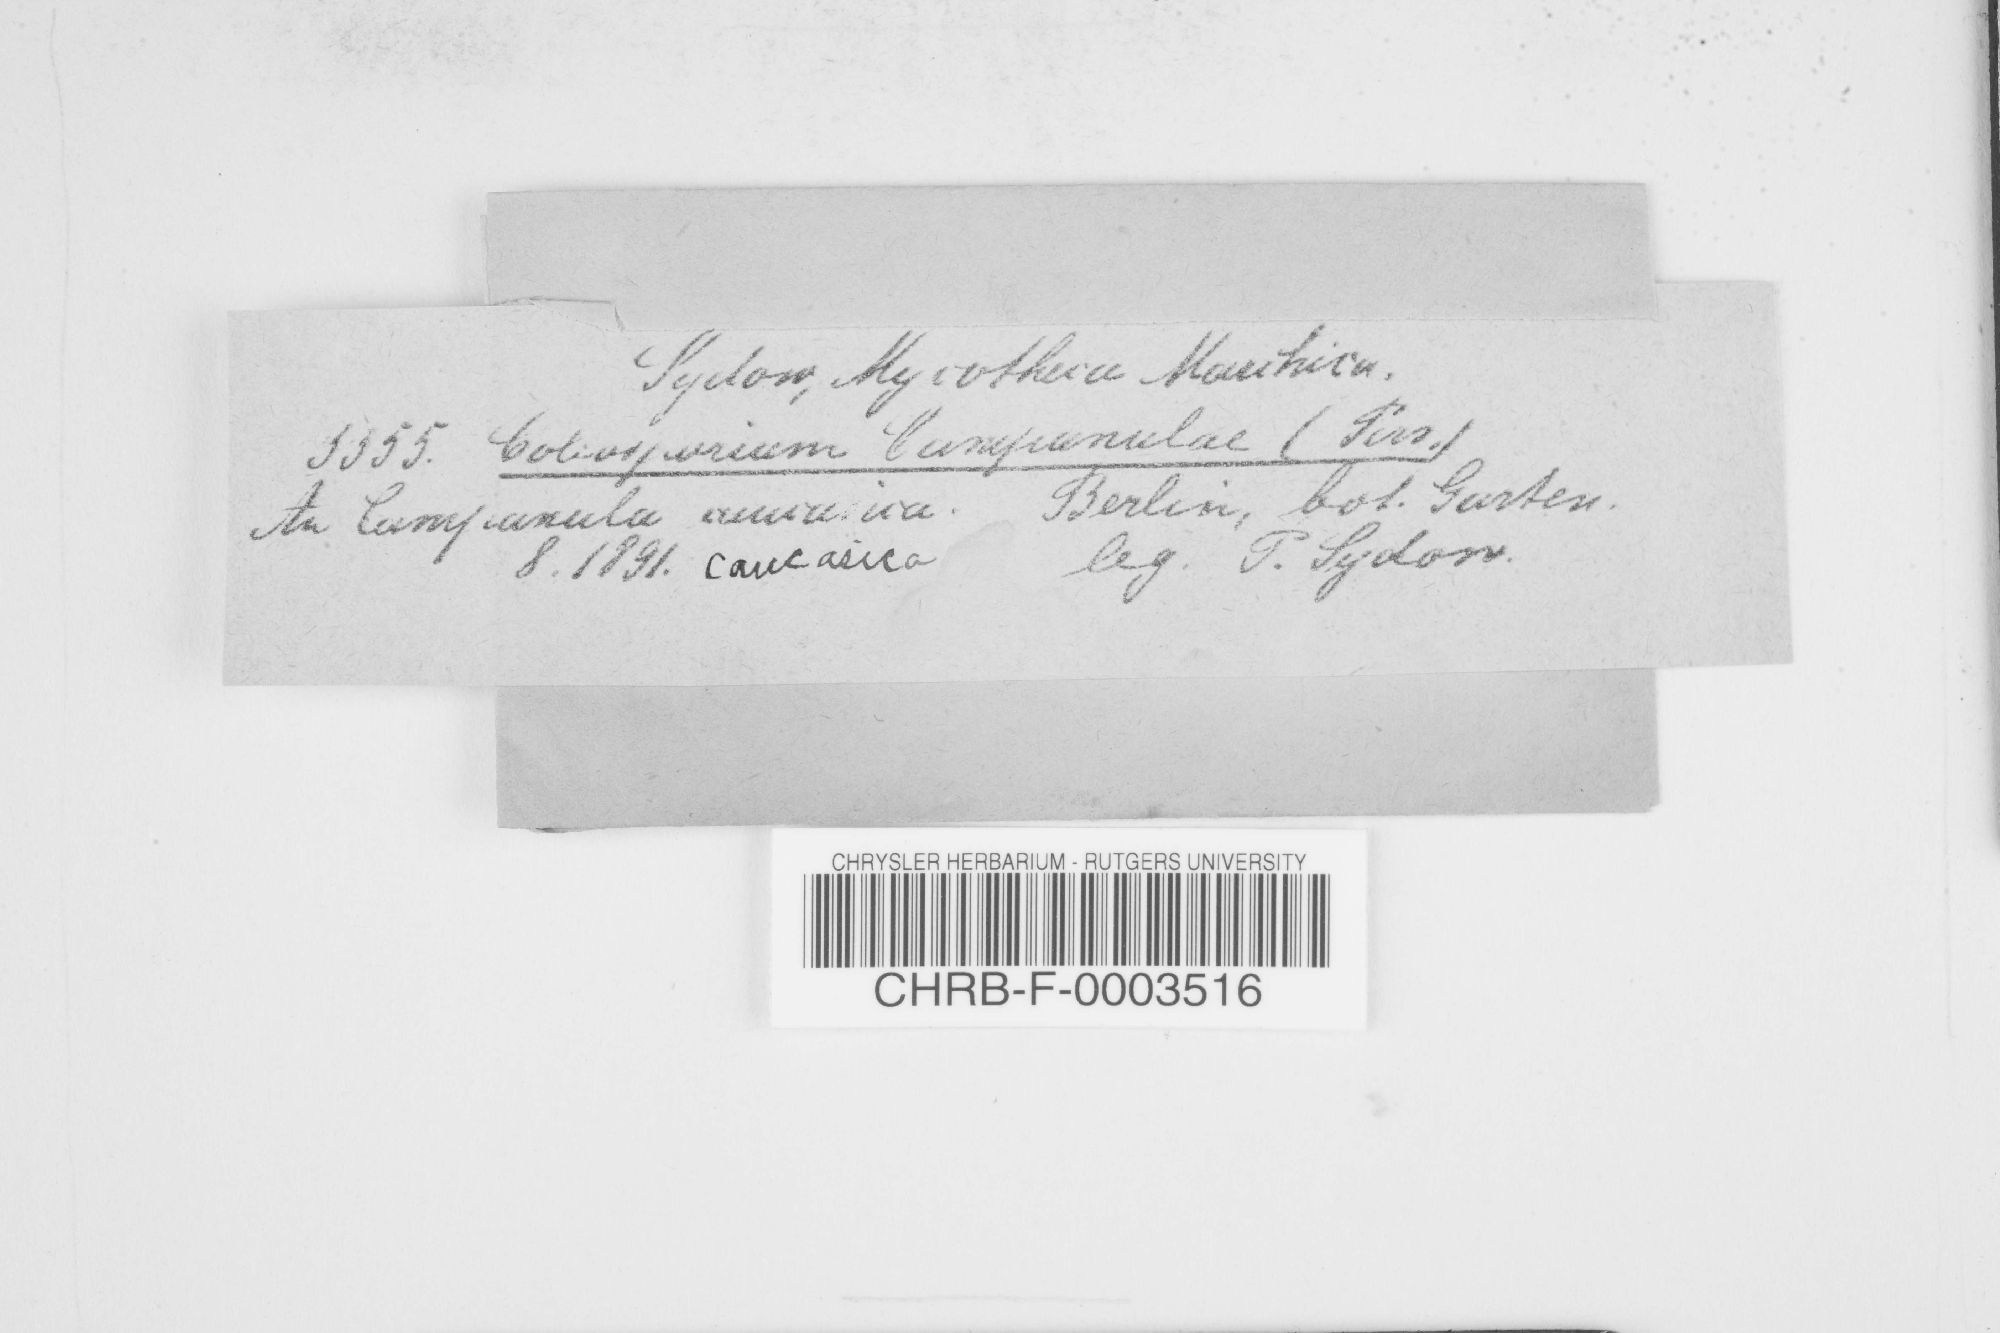 Sydow, Mycotheca Marchica.
3355. Coleosporium Campanulae (Pers.)
An Campanula caucasica. Berlin, bot. Garten.
8. 1891. caucasica leg. P. Sydow.
CHRYSLER HERBARIUM - RUTGERS UNIVERSITY
CHRB-F-0003516